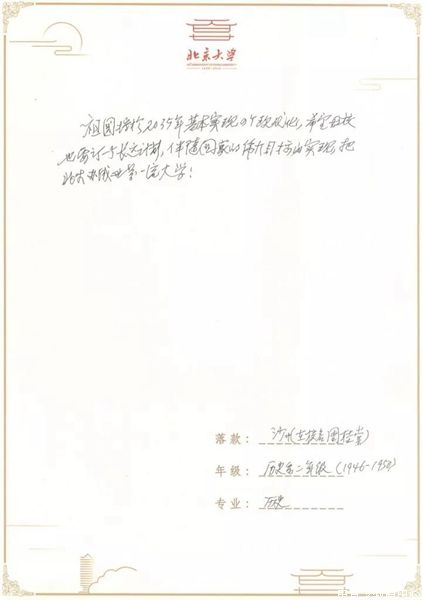 北京大学
祖国将于2035年基本实现四个现代化，希望母校
也要订一个长远计划，伴随国家的伟大目标的实现，把
北大办成世界一流大学！
落款：沙州(在校名周桂棠)
年级：历史系二年级(1946-1950)
专业：历史